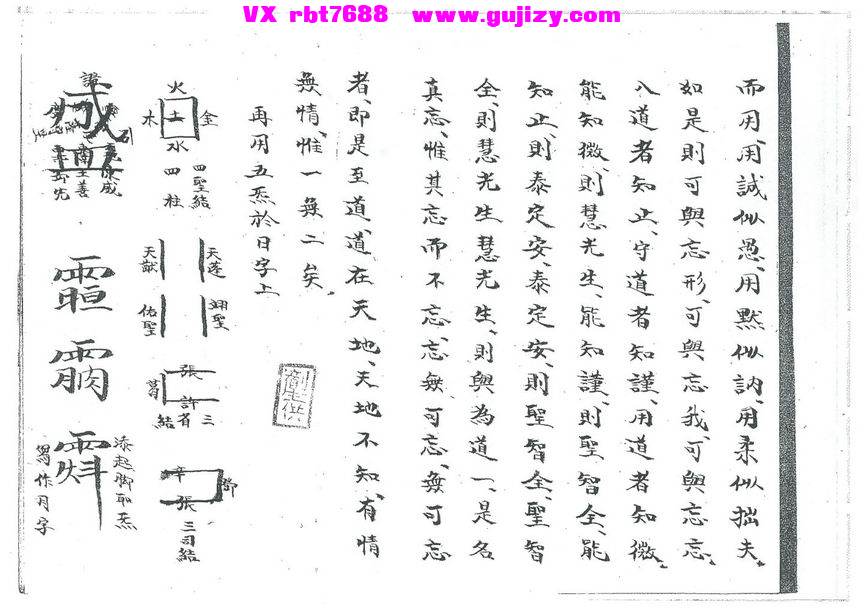 VX rbt7688 www.gujizy.com
而用、用誠似愚、用默似訥、用柔似拙、夫
如是則可與忘形、可與忘我、可與忘忘、
入道者知止、守道者知謹、用道者知微、
能知微、則慧光生、能知謹、則聖智全、能
知止、則泰定安、泰定安、則聖智全、聖智
全、則慧光生、慧光生、則與為道一、是名
真忘、惟其忘而不忘、忘無可忘、無可忘
者、即是至道、道在天地、天地不知、有情
無情、惟一無二矣、
再用五炁於日字上
火
金
土
木
水
四聖結
四柱
天蓬
天猷
翊聖
佑聖
張
葛
許
三省結
鄧
辛
張
三司結
添起脚取炁
寫作月字